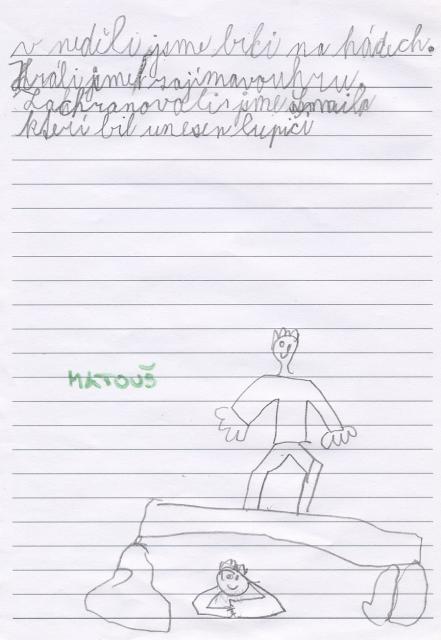 v neděli jsme bili na hádech.
Hráli jsme zajímavou hru.
Zachranovali jsme šmaila
kterí bil unesen lupiči
MATOUŠ